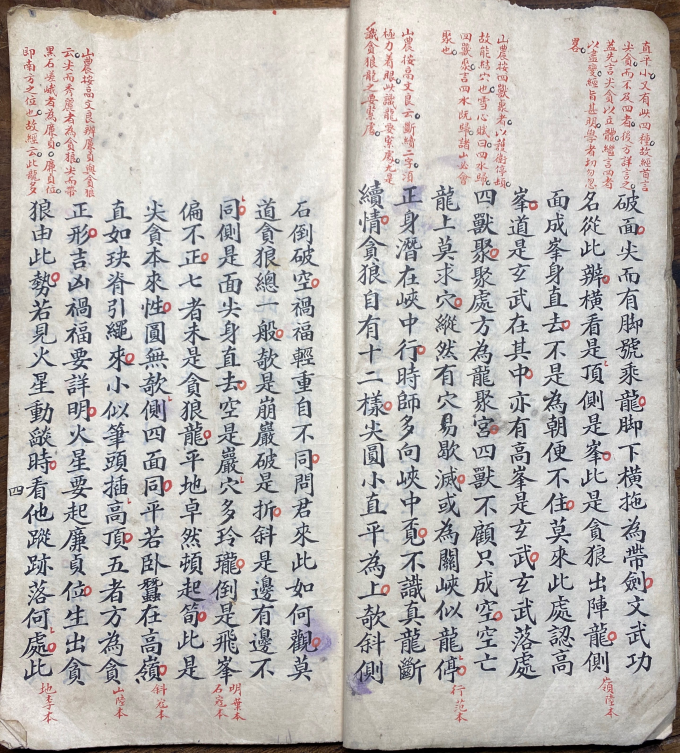 直平小又有此四種故經首言
尖貪而不及四者後方詳言之
蓋先言尖貪以立體繼言四者
以盡變經旨甚明學者切勿忽
畧
山農按四獸聚者以護衛停頓
故能結穴也雪心賦曰四水歸
四獸聚吉四水既歸諸山必會
聚也
山農按高文良云斷續二字須
極力着眼此識龍要案處尤是
識貪狼龍之要案處
破面尖而有脚號乘龍脚下橫拖為帶劍文武功
名從此辨橫看是頂側是峯此是貪狼出陣龍側
面成峯身直去不是為朝便不住莫來此處認高
峯道是玄武在其中亦有高峯是玄武玄武落處
四獸聚聚處方為龍聚宮四獸不顧只成空空亡
龍上莫求穴縱然有穴易歇滅或為關峽似龍停
正身潛在峽中行時師多向峽中覔不識真龍斷
續情貪狼自有十二樣尖圓小直平為上欹斜側
嶺陸本
行范本
山農按高文良辨廉貞與貪狼
云尖而秀麗者為貪狼尖而帶
黑石嵯峨者為廉貞廉貞位
即南方之位也故經云此龍多
石倒破空禍福輕重自不同問君來此如何觀莫
道貪狼總一般欹是崩巖破是折斜是邊有邊不
同側是面尖身直去空是巖穴多玲瓏倒是飛峯
偏不正七者未是貪狼龍平地卓然頓起筍此是
尖貪本來性圓無欹側四面同平若臥蠶在高嶺
直如玦脊引繩來小似筆頭插高頂五者方為貪
正形吉凶禍福要詳明火星要起廉貞位生出貪
狼由此勢若見火星動燄時看他蹤跡落何處此
四
明葉本
石寇本
斜寇本
山陸本
地李本